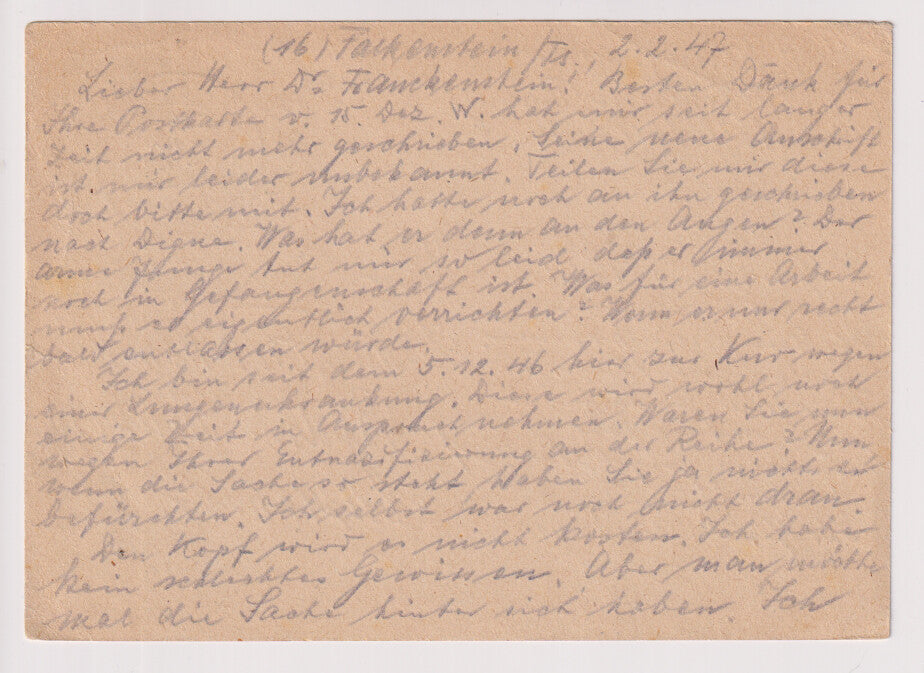 (16) Falkenstein/Ts., 2.2.47
Lieber Herr Dr. Franckenstein! Besten Dank für
Ihre Postkarte v. 15. Dez. W. hat mir seit langer
Zeit nicht mehr geschrieben. Seine neue Anschrift
ist mir leider unbekannt. Teilen Sie mir diese
doch bitte mit. Ich hatte noch an ihn geschrieben
nach Digne. Was hat er denn an den Augen? Der
arme Junge tut mir so leid, daß er immer
noch in Gefangenschaft ist. Was für eine Arbeit
muß er eigentlich verrichten? Wenn er nur recht
bald entlassen würde.
Ich bin seit dem 5.12.46 hier zur Kur wegen
einer Lungenerkrankung. Diese wird wohl noch
einige Zeit in Anspruch nehmen. Waren Sie nun
wegen Ihrer Entnazifizierung an der Reihe? Nun
wenn die Sache so steht haben Sie ja nichts zu
befürchten. Ich selbst war noch nicht dran.
Den Kopf wird es nicht kosten. Ich habe
kein schlechtes Gewissen. Aber man möchte
mal die Sache hinter sich haben. Ich